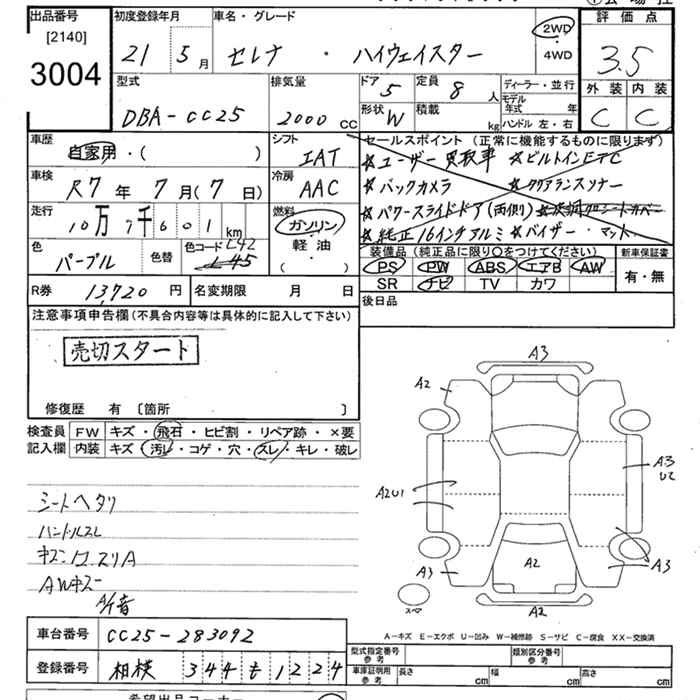 出品番号 初度登録年月 車名・グレード 2WD 評価点
[2140] 21 5月 セレナ・ハイウェイスター 4WD 3.5
3004
型式 排気量 ドア 5 定員 8人 ディーラー・並行 外装 内装
DBA-CC25 2000 CC 形状 W 積載 kg モデル年式 年 ハンドル 左・右 C C
車歴 自家用・( ) シフト IAT セールスポイント (正常に機能するものに限ります)
☆ユーザー買取車 ☆ビルトインETC
車検 R7年 7月 (7日) 冷房 AAC ☆バックカメラ ☆クリアランスソナー
走行 10万7千601km 燃料 ガソリン 軽油 ( ) ☆パワースライドドア(両側)
☆純正16インチアルミ ☆バイザー・マット
色 パープル 色替 色コード L42 L45 装備品 (純正品に限り○をつけてください) 新車保証書
PS PW ABS エアB AW 有・無
R券 13,720円 名変期限 月 日 SR ナビ TV カワ
注意事項申告欄 (不具合内容等は具体的に記入して下さい) 後日品
売切スタート
修復歴 有 〔箇所 〕
検査員 FW キズ・飛石・ヒビ割・リペア跡・×要
記入欄 内装 キズ・汚レ・コゲ・穴・スレ・キレ・破レ
A3
A2
A3
U2
A2U1
シートヘタリ
ハンドルスレ
AWキズ
A/T音
A3 A2 A3
スペア A2
A-キズ E-エクボ U-凹み W-補修跡 S-サビ C-腐食 XX-交換済
車台番号 CC25-283092
型式指定番号 参考 類別区分番号 参考
登録番号 相模 344 も 1224
車庫証明用 参考 長さ cm 幅 cm 高さ cm
希望出品コーナー